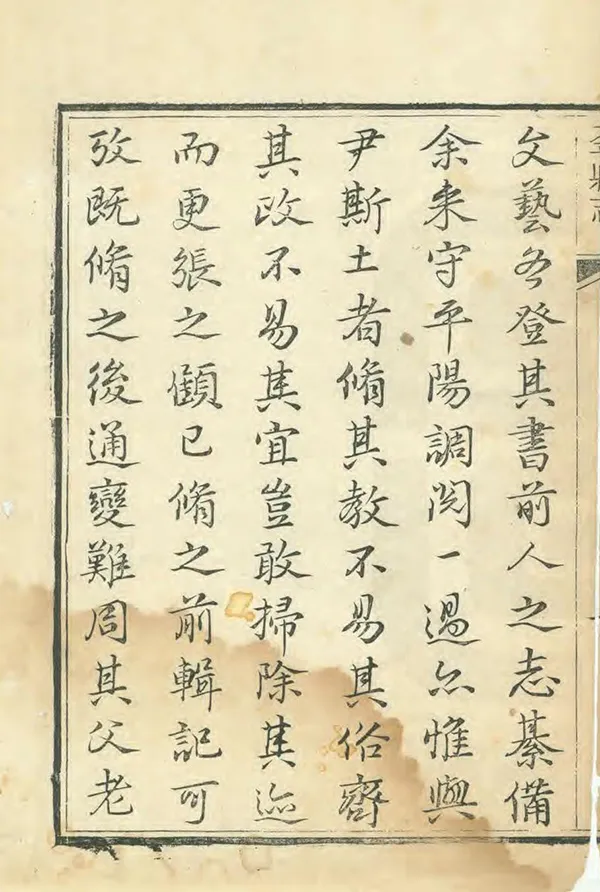 文藝各登其書前人之志綦備
余来守平陽調閱一過亦惟與
尹斯土者脩其教不易其俗齊
其政不易其宜豈敢掃除其迹
而更張之顧已脩之前輯記可
攷既脩之後通變難周其父老